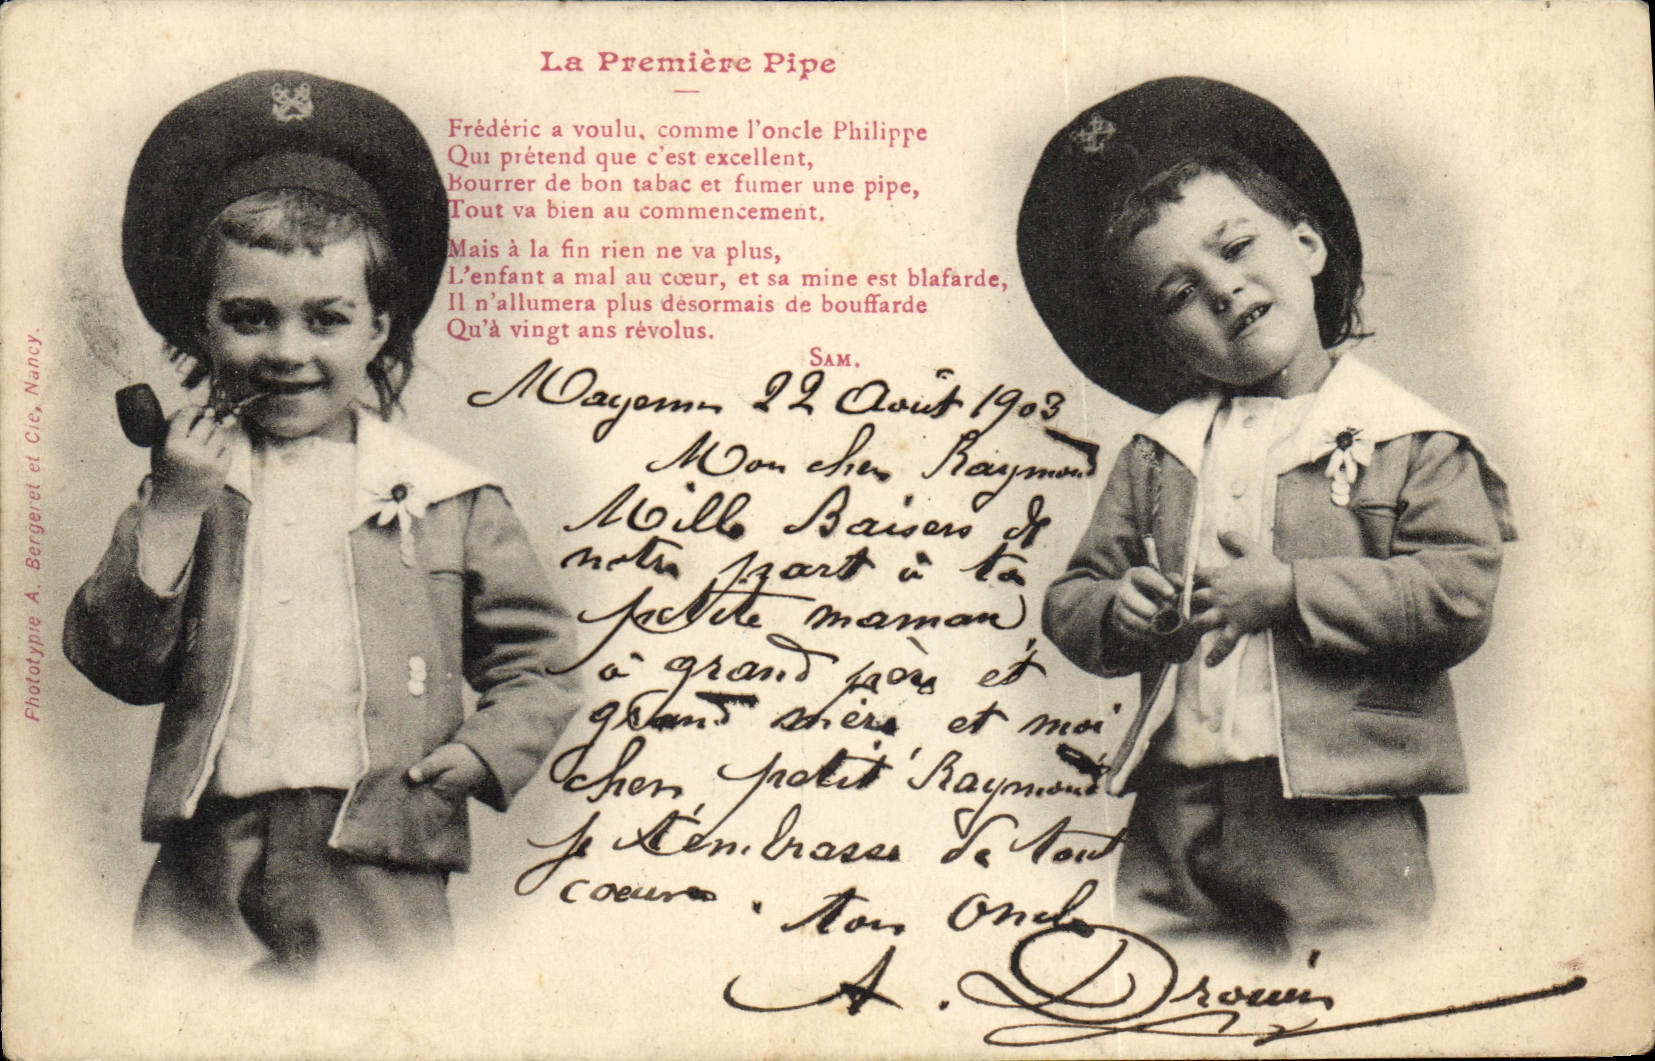 La Première Pipe
Frédéric a voulu, comme l'oncle Philippe
Qui prétend que c'est excellent,
Bourrer de bon tabac et fumer une pipe,
Tout va bien au commencement.
Mais à la fin rien ne va plus,
L'enfant a mal au cœur, et sa mine est blafarde,
Il n'allumera plus désormais de bouffarde
Qu'à vingt ans révolus.
SAM.
Mayenne 22 Août 1903
Mon cher Raymond
Mille Baisers de
notre part à ta
petite maman
à grand père et
grand mère et moi
cher petit Raymond
je t'embrasse de tout
coeur.
ton Oncle
A. Drouin
Phototypie A. Bergeret et Cie, Nancy.